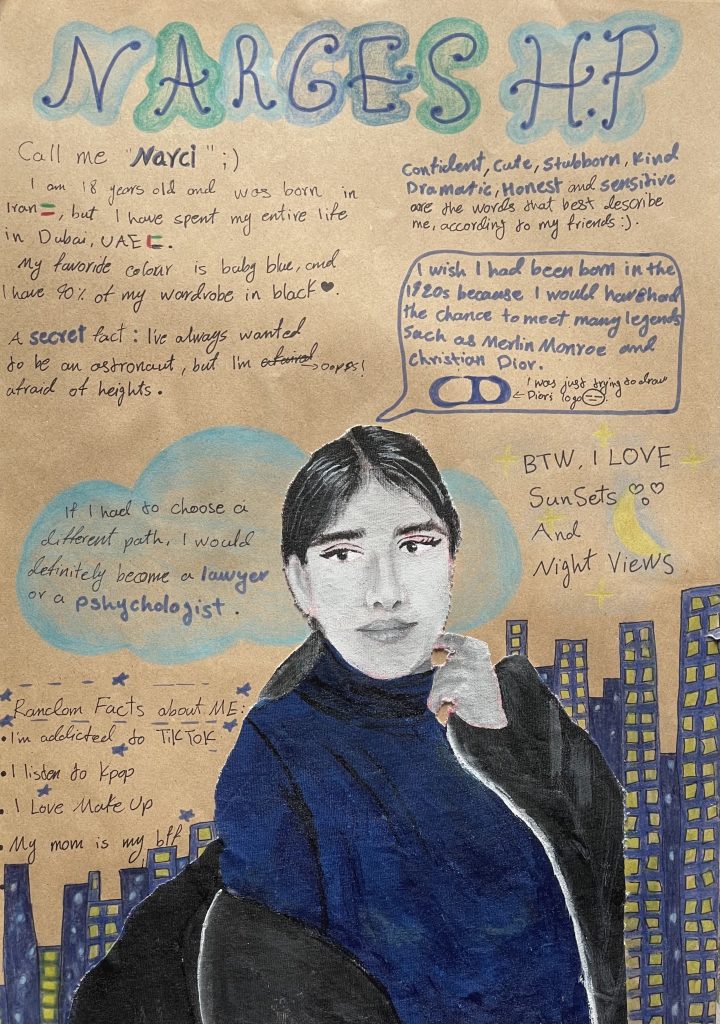 NARGES H.P
Call me "Narci" ;)
I am 18 years old and was born in
Iran, but I have spent my entire life
in Dubai, UAE.
My favorite colour is baby blue, and
I have 90% of my wardrobe in black.
A secret fact: I've always wanted
to be an astronaut, but I'm → oops!
afraid of heights.
Confident, Cute, Stubborn, Kind
Dramatic, Honest and sensitive
are the words that best describe
me, according to my friends :).
I wish I had been born in the
1920s because I would have had
the chance to meet many legends
such as Merlin Monroe and
Christian Dior.
CD
I was just trying to draw
← Dior's logo
If I had to choose a
different path, I would
definitely become a lawyer
or a pshychologist.
BTW, I LOVE
SunSets
And
Night Views
Random Facts about ME:
• I'm addicted to TikTok
• I listen to Kpop
• I Love Make Up
• My mom is my bff
•